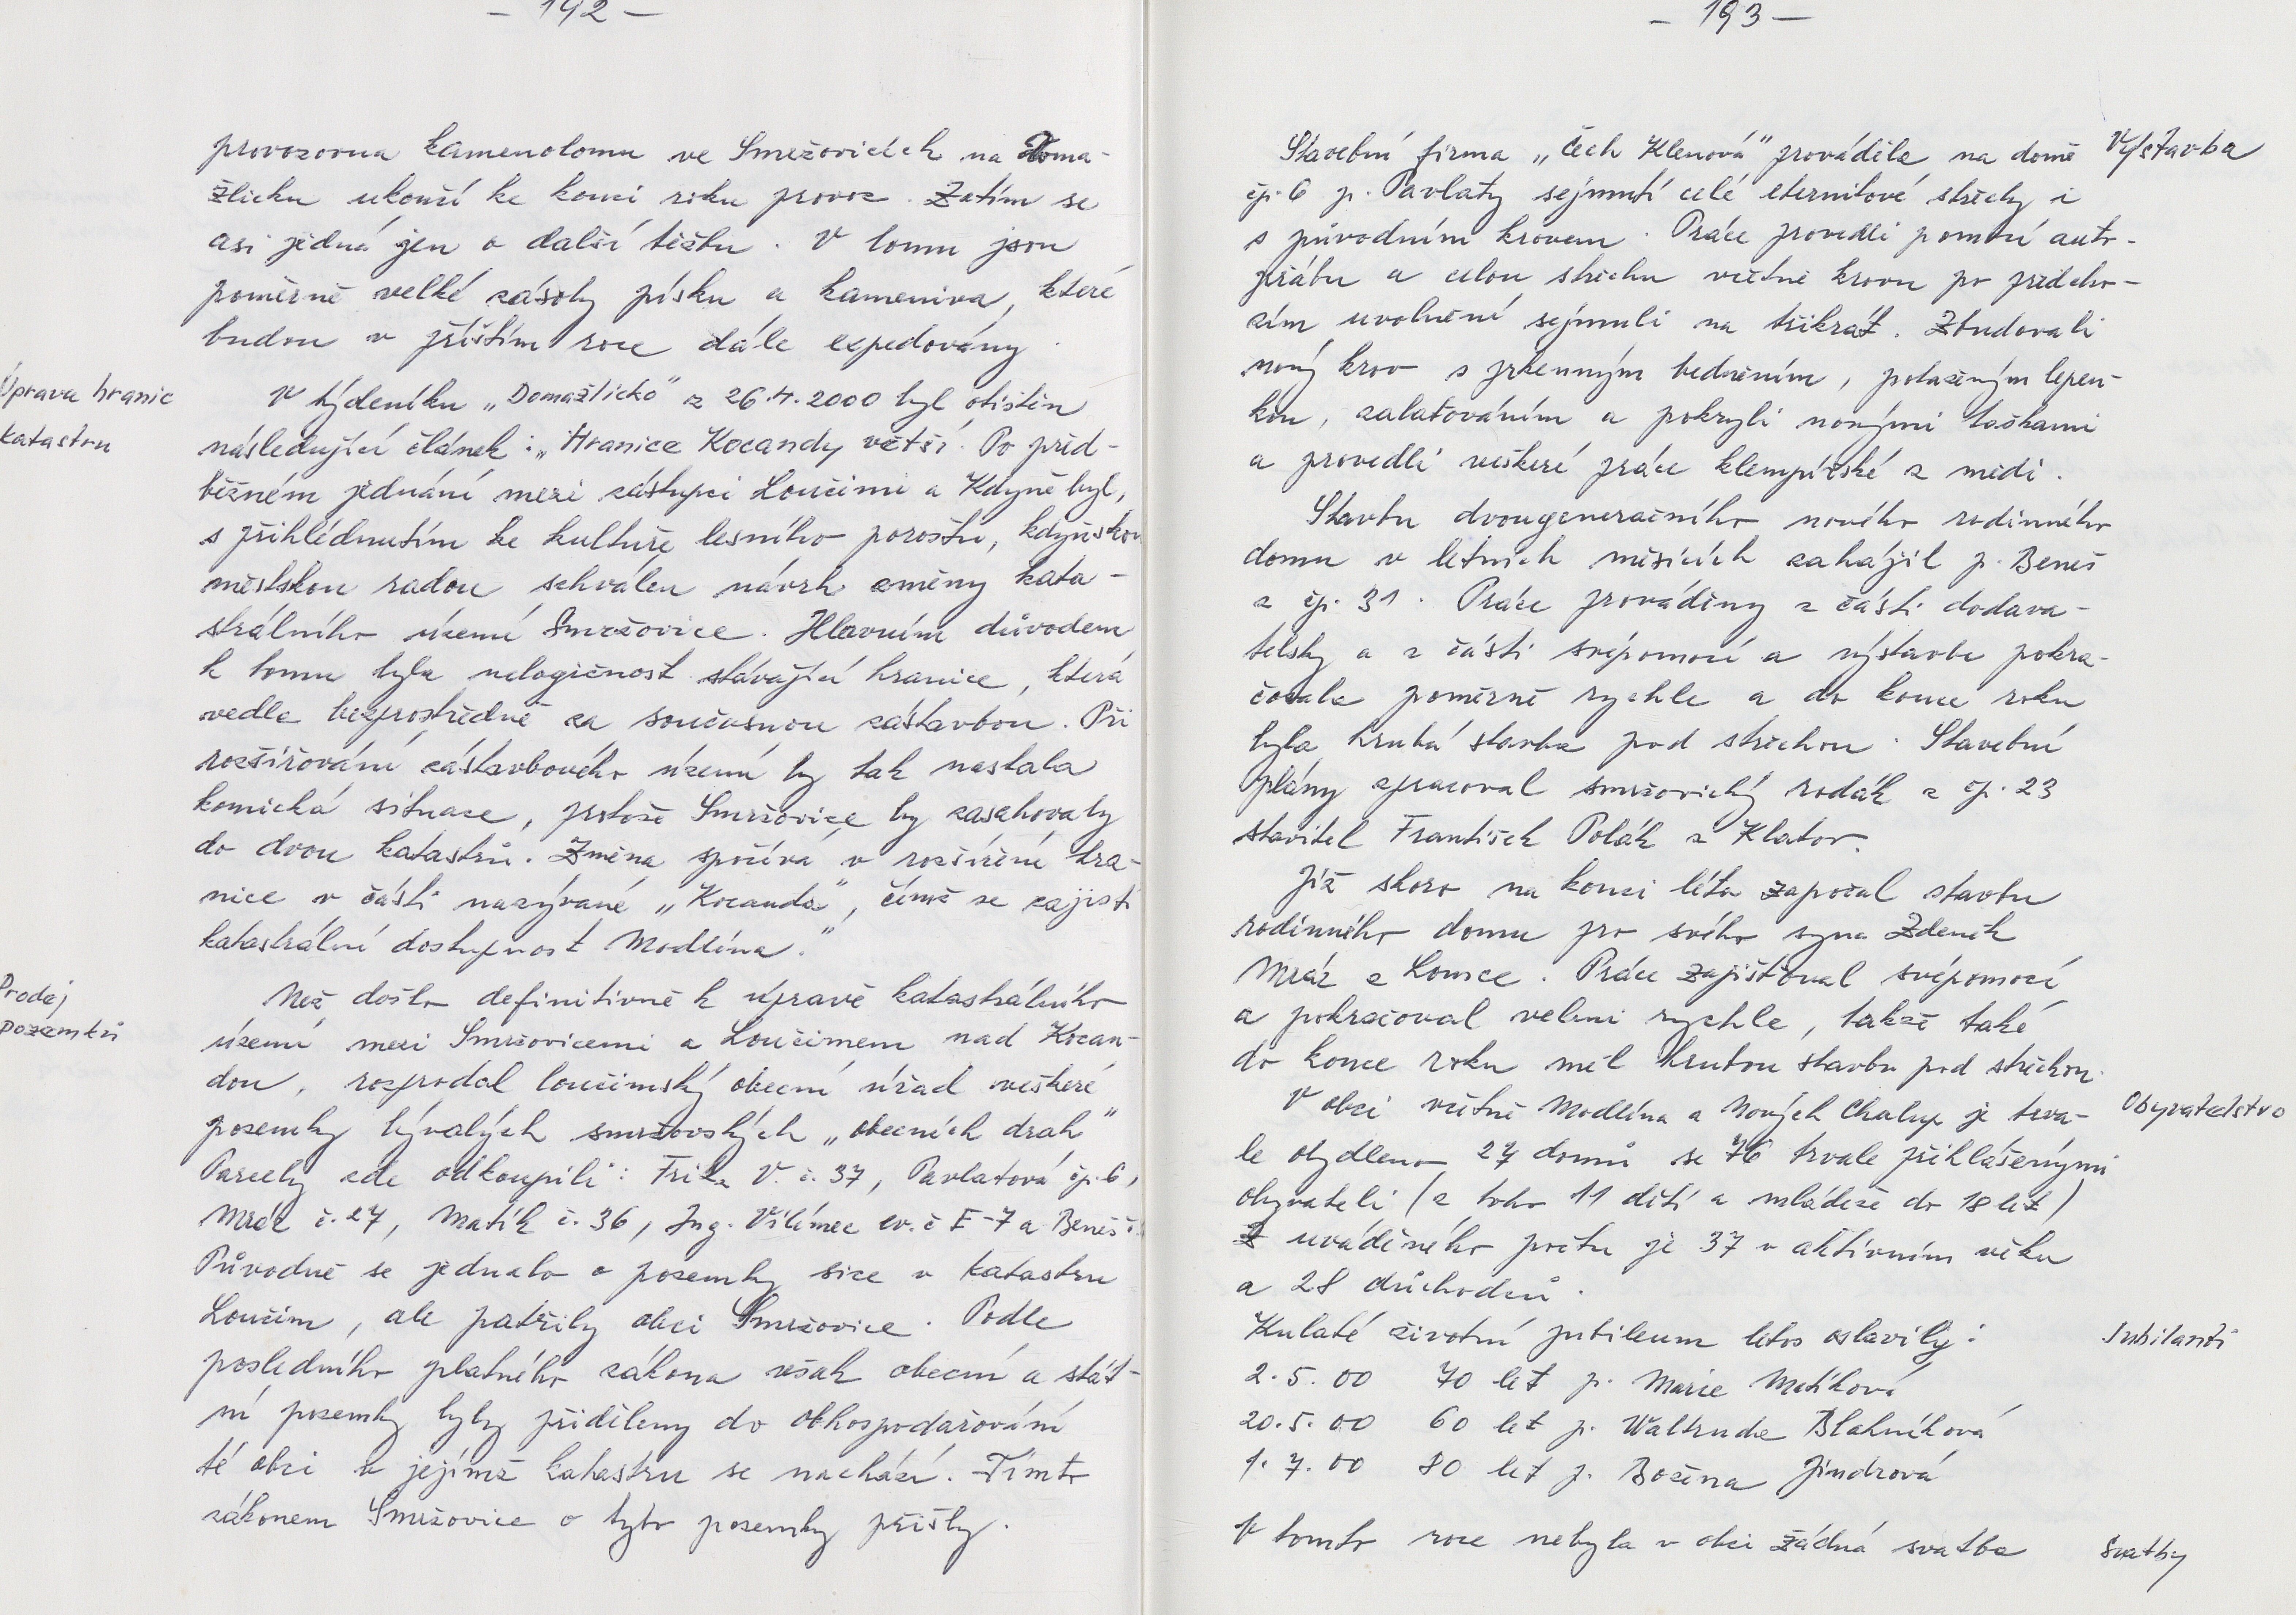 – 192 –
provozovna kamenolomu ve Smržovicích na Doma-
žlicku ukončí ke konci roku provoz. Zatím se
asi jedná jen o další těžbu. V lomu jsou
poměrně velké zásoby písku a kameniva, které
budou v příštím roce dále expedovány.
Úprava hranic
katastru
V týdeníku „Domažlicko" z 26.4.2000 byl otištěn
následující článek: „Hranice Kocandy větší. Po před-
běžném jednání mezi zástupci Loučimi a Kdyně byl,
s přihlédnutím ke kultuře lesního porostu, kdyňskou
městskou radou schválen návrh změny kata-
strálního území Smržovice. Hlavním důvodem
k tomu byla nelogičnost stávající hranice, která
vedla bezprostředně za současnou zástavbou. Při
rozšiřování zástavbového území by tak nastala
komická situace, protože Smržovice by zasahovaly
do dvou katastrů. Změna spočívá v rozšíření hra-
nice v části nazývané „Kocanda", čímž se zajistí
katastrální dostupnost Modlína."
Prodej
pozemků
Než došlo definitivně k úpravě katastrálního
území mezi Smržovicemi a Loučimem nad Kocan-
dou, rozprodal loučimský obecní úřad veškeré
pozemky bývalých smržovských „obecních drah"
Parcely zde odkoupili: Frisz V. č. 37, Pavlatová čp. 6,
Mráz č. 27, Matík č. 36, Ing. Vilímec ev. č E-7 a Beneš č.
Původně se jednalo o pozemky sice v katastru
Loučim, ale patřily obci Smržovice. Podle
posledního platného zákona však obecní a stát-
ní pozemky byly přiděleny do obhospodařování
té obci v jejímž katastru se nachází. Tímto
zákonem Smržovice o tyto pozemky přišly.
– 193 –
Výstavba
Stavební firma „Čech Klenová" prováděla na domě
čp. 6 p. Pavlaty sejmutí celé eternitové střechy i
s původním krovem. Práce provedli pomocí auto-
jeřábu a celou střechu včetně krovu po předcho-
zím uvolnění sejmuli na třikrát. Zbudovali
nový krov s prkenným bedněním, potaženým lepen-
kou, zalaťováním a pokryli novými taškami
a provedli veškeré práce klempířské z mědi.
Stavbu dvougeneračního nového rodinného
domu v letních měsících zahájil p. Beneš
z čp. 31. Práce prováděny z části dodava-
telsky a z části svépomocí a výstavba pokra-
čovala poměrně rychle a do konce roku
byla hrubá stavba pod střechou. Stavební
plány zpracoval smržovický rodák z čp. 23
stavitel František Polák z Klatov.
Již skoro na konci léta započal stavbu
rodinného domu pro svého syna Zdeněk
Mráz z Lomce. Práce zajišťoval svépomocí
a pokračoval velmi rychle, takže také
do konce roku měl hrubou stavbu pod střechou.
Obyvatelstvo
V obci včetně Modlína a Nových Chalup je trva-
le obydleno 27 domů se 76 trvale přihlášenými
obyvateli (z toho 11 dětí a mládeže do 18 let)
Z uváděného počtu je 37 v aktivním věku
a 28 důchodců.
Jubilanti
Kulaté životní jubileum letos oslavily:
2. 5. 00 70 let p. Marie Matíková
20. 5. 00 60 let p. Waltrude Blahníková
1. 7. 00 80 let p. Božena Jindrová
Svatby
V tomto roce nebyla v obci žádná svatba